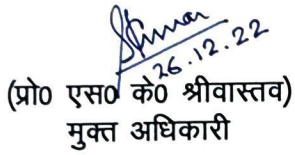 SKumar
26.12.22
(प्रो0 एस0 के0 श्रीवास्तव)
मुक्त अधिकारी